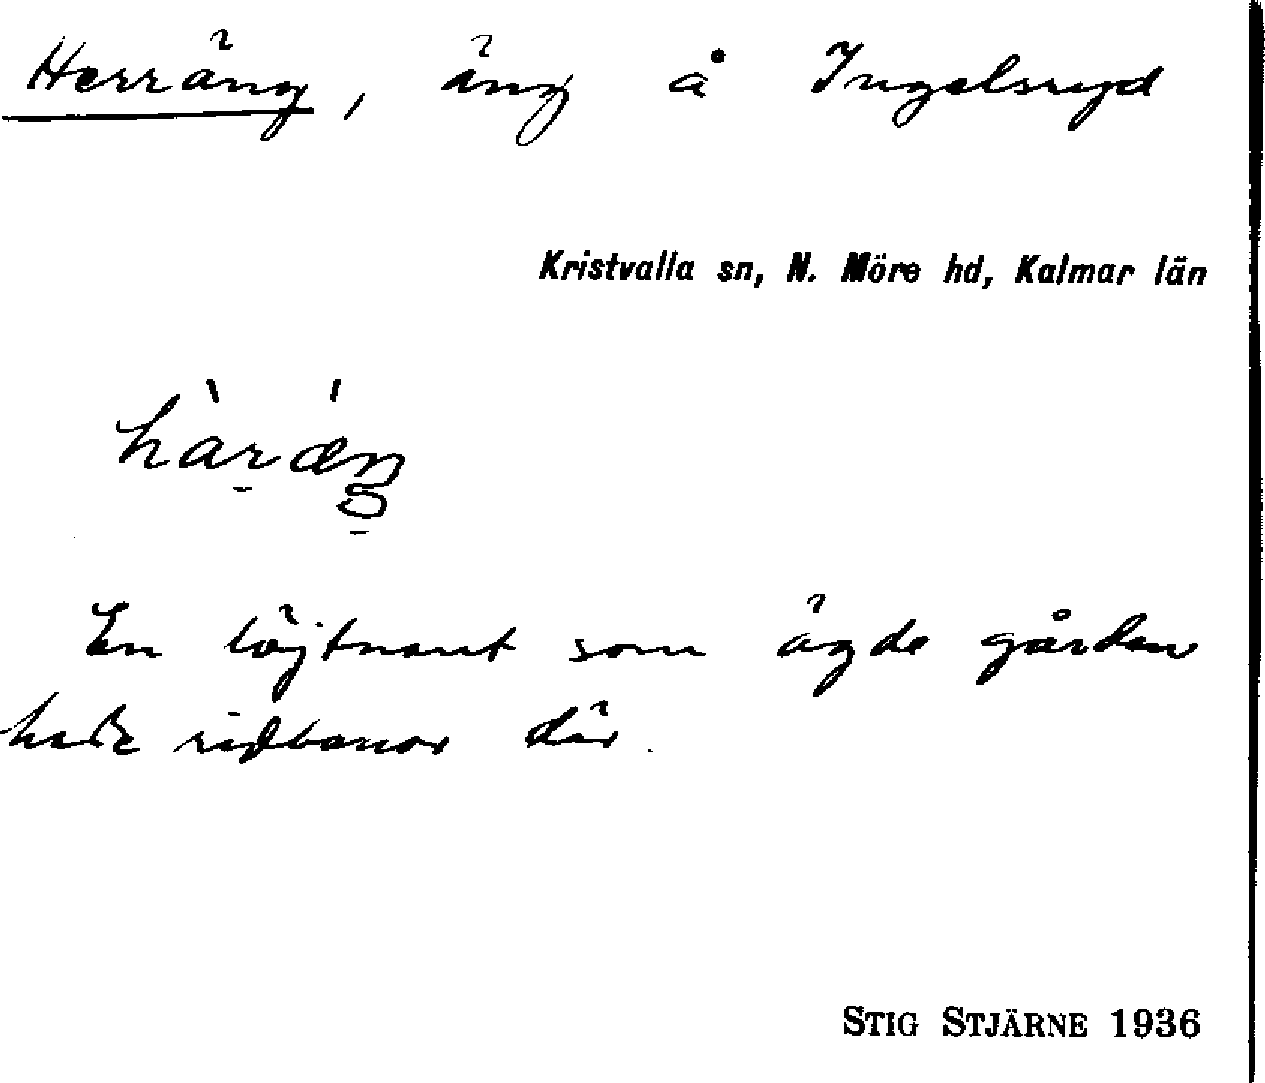 Herräng, äng å Ingelsryd
Kristvalla sn, N. Möre hd, Kalmar län
hàrǽŋ
En löjtnant som ägde gården
hade ridbanor där.
STIG STJÄRNE 1936